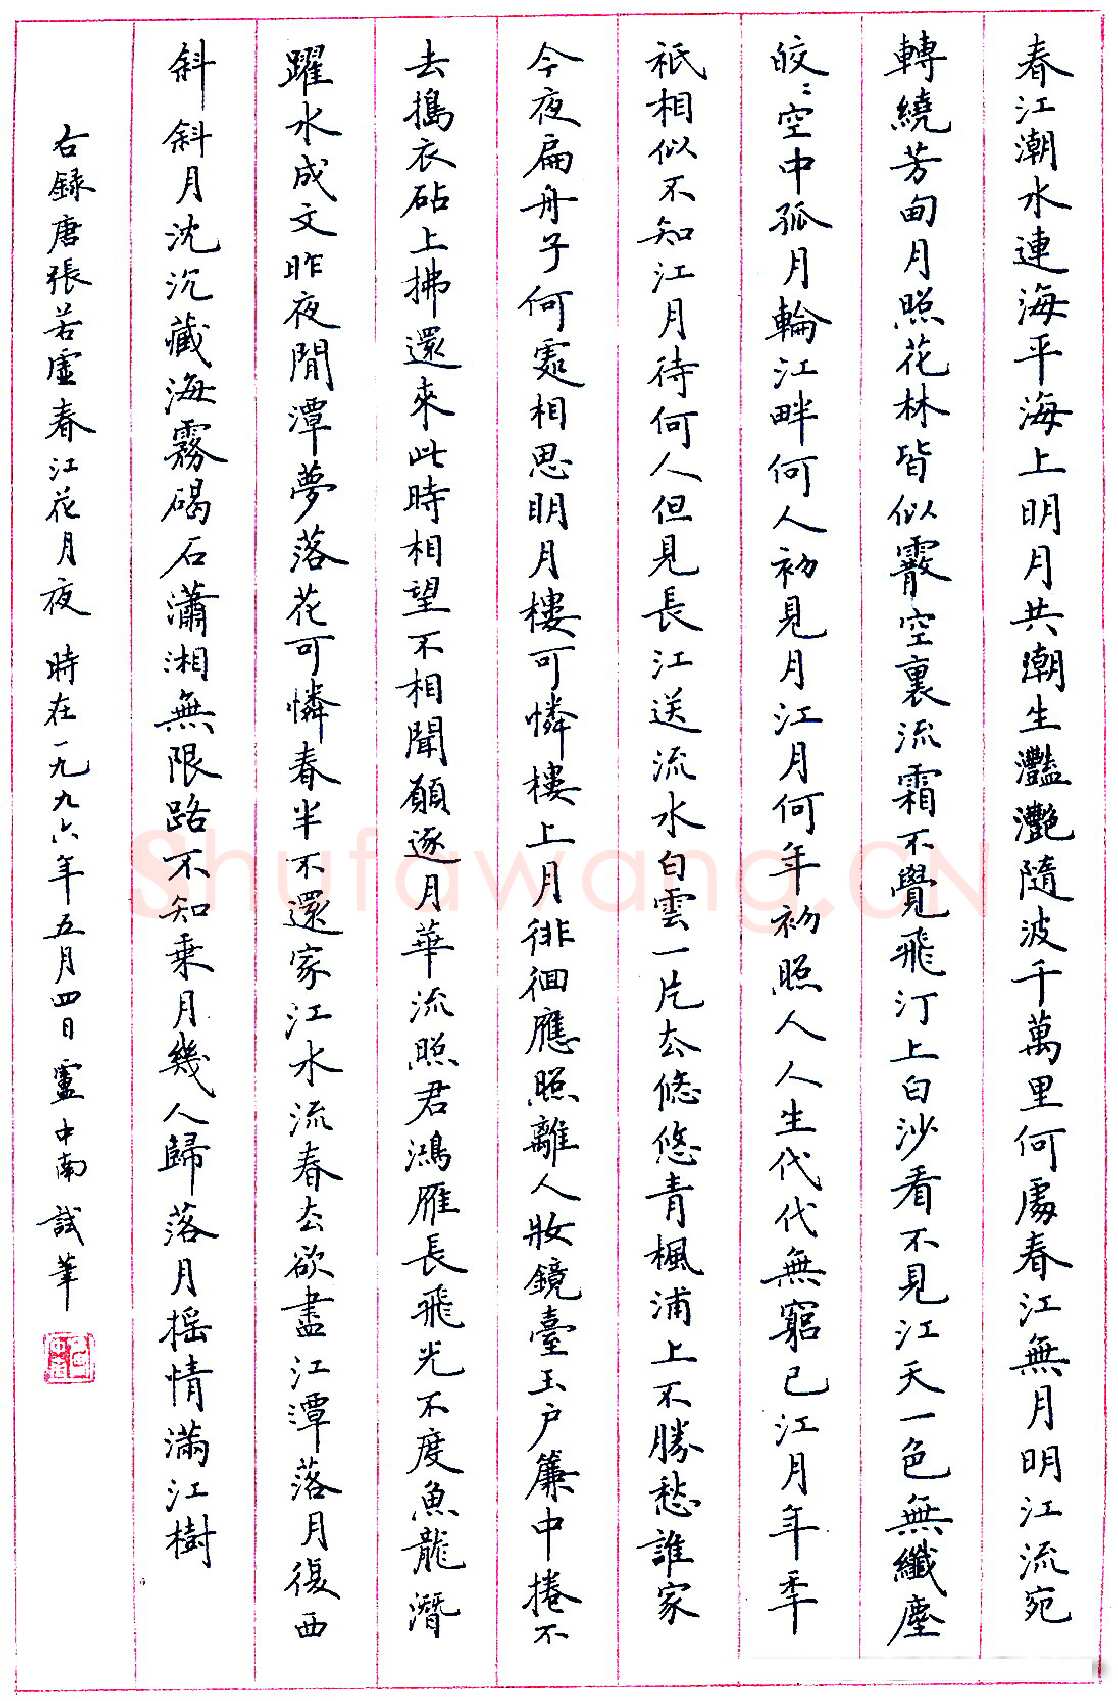 春江潮水連海平海上明月共潮生灩灩隨波千萬里何處春江無月明江流宛
轉繞芳甸月照花林皆似霰空裏流霜不覺飛汀上白沙看不見江天一色無纖塵
皎〻空中孤月輪江畔何人初見月江月何年初照人人生代代無窮已江月年年
祇相似不知江月待何人但見長江送流水白雲一片去悠悠青楓浦上不勝愁誰家
今夜扁舟子何處相思明月樓可憐樓上月徘徊應照離人妝鏡臺玉户簾中捲不
去搗衣砧上拂還來此時相望不相聞願逐月華流照君鴻雁長飛光不度魚龍潛
躍水成文昨夜閒潭夢落花可憐春半不還家江水流春去欲盡江潭落月復西
斜斜月沈沉藏海霧碣石瀟湘無限路不知乘月幾人歸落月摇情滿江樹
右録唐張若虛春江花月夜 時在一九九六年五月四日盧中南試筆
Shufawang.CN